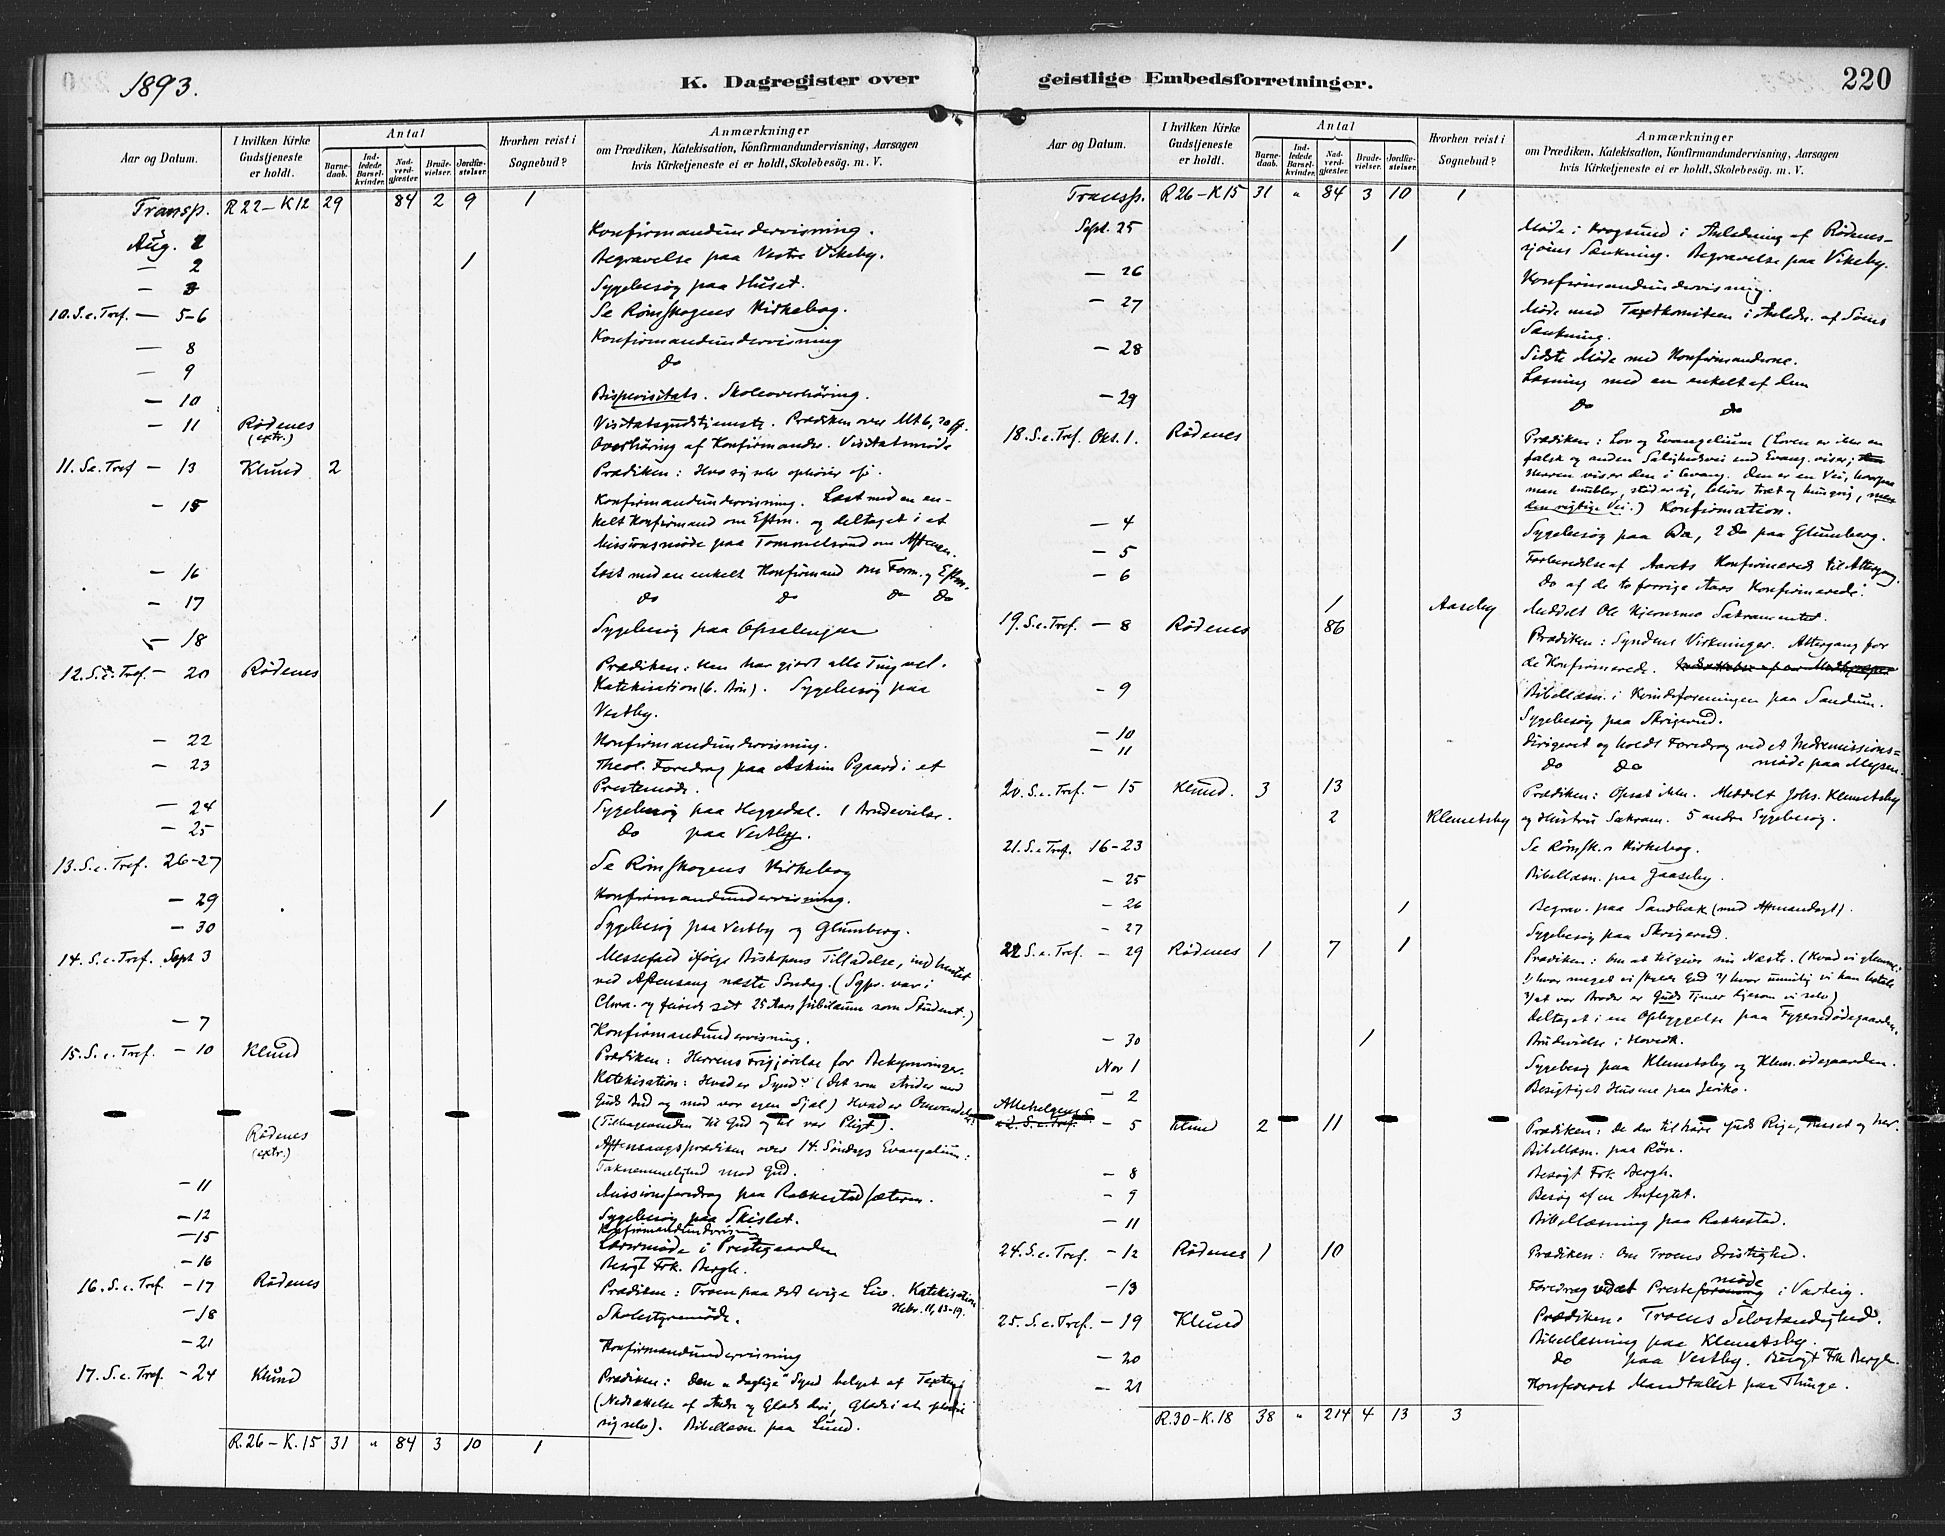 1893.
K. Dagregister over
geistlige Embedsforretninger.
220
Aar og Datum.
I hvilken Kirke Gudstjeneste er holdt.
Antal
Barne-daab.
Ind-ledede Barsel-kvinder.
Nad-verd-gjæster.
Brude-vielser.
Jordfæ-stelser.
Hvorhen reist i Sognebud?
Anmærkninger
om Prædiken, Katekisation, Konfirmandundervisning, Aarsagen
hvis Kirketjeneste ei er holdt, Skolebesøg. m. V.
Transp. R22-K12 29 84 2 9 1
Aug. 2 Konfirmandundervisning.
- 2 1 Begravelse paa Vestre Vikeby.
- 3 Sygebesøg paa Huset.
10. S. e. Tref. - 5-6 Se Rømskogens Kirkebog.
- 8 Konfirmandundervisning
- 9 Do
- 10 Bispevisitats. Skoleoverhøring.
- 11 Rødenes (extr.) Visitatsgudstjeneste. Prædiken over Mt 6, 20 ff.
Overhøring af Konfirmander. Visitatsmøde
11. S. e. Tref - 13 Klund 2 Prædiken: Hvo sig selv ophøier osv.
- 15 Konfirmandundervisning. Læst med en en-
kelt Konfirmand om Eftm. og deltaget i et
Missionsmøde paa Tommelsrud om Aftenen.
- 16 Læst med en enkelt Konfirmand om Form. og Eftm.
- 17 do do do do
- 18 Sygebesøg paa Opsalengen
12. S. e. Tref. - 20 Rødenes Prædiken: Han har gjort alle Ting vel.
Katekisation (6. Bøn). Sygebesøg paa
Vestby.
- 22 Konfirmandundervisning.
- 23 Theol. Foredrag paa Askim Pgaard i et
Prestemøde.
- 24 1 Sygebesøg paa Heggedal. 1 Brudevielse.
- 25 Do paa Vestby.
13. S. e. Tref. 26-27 Se Rømskogens Kirkebog
- 29 Konfirmandundervisning.
- 30 Sygebesøg paa Vestby og Glumberg.
14. S. e. Tref. Sept 3 Messefald ifølge Biskopens Tilladelse, indhentet
ved Aftensang næste Søndag. (Sgpr. var i
Chra. og feirede sit 25 Aars Jubilæum som Student.)
- 7 Konfirmandundervisning.
15. S. e. Tref. - 10 Klund Prædiken: Herrens Frigjørelse for Bekymringer.
Katekisation: Hvad er Synd? (Det som strider mod
Guds Bud og mod vor egen Sjæl) Hvad er Omvendelse?
(Tilbagevenden til Gud og til vor Pligt).
Rødenes (extr.) Aftensangsprædiken over 14. Søndags Evangelium:
Taknemmelighed mod Gud.
- 11 Missionsforedrag paa Rakkestadsæteren.
- 12 Sygebesøg paa Skislet.
- 15 Konfirmandundervisning
Lærermøde i Prestegaarden
- 16 Besøgt Frk. Bergh.
16. S. e. Tref. - 17 Rødenes Prædiken: Troen paa det evige Liv. Katekisation
Hebr. 11, 13-19.
- 18 Skolestyremøde.
- 21 Konfirmandundervisning
17. S. e. Tref. - 24 Klund Prædiken: Den "daglige" Synd belyst af Texten
(Nedsættelse af Andre og Glæde
sig selv). Bibellæsn. paa Lund.
R.26-K.15 31 " 84 3 10 1
Aar og Datum.
I hvilken Kirke Gudstjeneste er holdt.
Antal
Barne-daab.
Ind-ledede Barsel-kvinder.
Nad-verd-gjæster.
Brude-vielser.
Jordfæ-stelser.
Hvorhen reist i Sognebud?
Anmærkninger
om Prædiken, Katekisation, Konfirmandundervisning, Aarsagen
hvis Kirketjeneste ei er holdt, Skolebesøg. m. V.
Transp. R26-K15 31 " 84 3 10 1
Sept. 25 1 Møde i Krogsund i Anledning af Rødenes-
sjøens Sænkning. Begravelse paa Vikeby.
- 26 Konfirmandundervisning.
- 27 Møde med Taxtkomiteen i Anledn. af Søens
Sænkning.
- 28 Sidste Møde med Konfirmanderne.
Læsning med en enkelt af dem
- 29 Do do
18. S. e. Tref. Okt. 1. Rødenes Prædiken: Lov og Evangelium (Loven er ikke en
falsk og anden Salighedsvei end Evang. viser;
Herren viser den i Evang. Den er en Vei, hvorpaa
man snubler, støder sig, bliver træt og hungrig, men
den rigtige Vei.) Konfirmation.
- 4 Sygebesøg paa Bøe, 2 Do paa Glumberg.
- 5 Forberedelse af Aarets Konfirmerede til Altergang.
- 6 Do af de to forrige Aars Konfirmerede.
1 Aaseby Meddelt Ole Kjensmo Sakramentet.
19. S. e. Tref. - 8 Rødenes 86 Prædiken: Syndens Virkninger. Altergang for
de Konfirmerede.
- 9 Bibellæsn. i Kvindeforeningen paa Sandum.
Sygebesøg paa Skrigerud.
- 10 Dirigeret og holdt Foredrag ved et Indremissions-
- 11 Do Do møde paa Mysen.
20. S. e. Tref. - 15 Klund. 3 13 Prædiken: Opsæt ikke. Meddelt Johs. Klemetsby
2 Klemetsby og Hustru Sakram. 5 andre Sygebesøg.
21. S. e Tref. 16-23 Se Rømsk.s Kirkebog.
- 25 Bibellæsn. paa Gaaseby.
- 26 1 Begrav. paa Sandbæk (med Aftenandagt).
- 27 Sygebesøg paa Skrigerud.
22 S. e. Tref. - 29 Rødenes 1 7 1 Prædiken: Om at tilgive sin Næste. (Hvad vi glemme:
1/ hvor meget vi skylder Gud 2/ hvor umulig vi kan betale
3/ at vor Broder er Guds Tjener ligesom vi selv)
Deltaget i en Opbyggelse paa
- 30 1 Brudevielse i Hovedk.
Nov 1 Sygebesøg paa Klemetsby og Klem.ødegaarden.
- 2 Besigtiget Husene paa Jeriko.
Allehelgens S.
23. S. e. Tref. - 5 Klund 2 11 Prædiken: De der tilhøre Guds Rige, hisset og her.
Bibellæsn. paa Røn.
- 8 Besøgt Frk. Bergh.
- 9 Besøg af en Anfegtet.
- 11 Bibellæsning paa Rakkestad.
24. S. e. Tref. - 12 Rødenes 1 10 Prædiken: Om Troens Dristighed.
- 13 Foredrag ved et Prestemøde i Varteig.
25. S. e. Tref. - 19 Klund Prædiken: Troens Selvstændighed.
Bibellæsning paa Klemetsby.
- 20 Do paa Vestby. Besøgt Frk Bergh.
- 21 Konfereret Mandtallet paa Thinge.
R.30-K.18 38 " 214 4 13 3